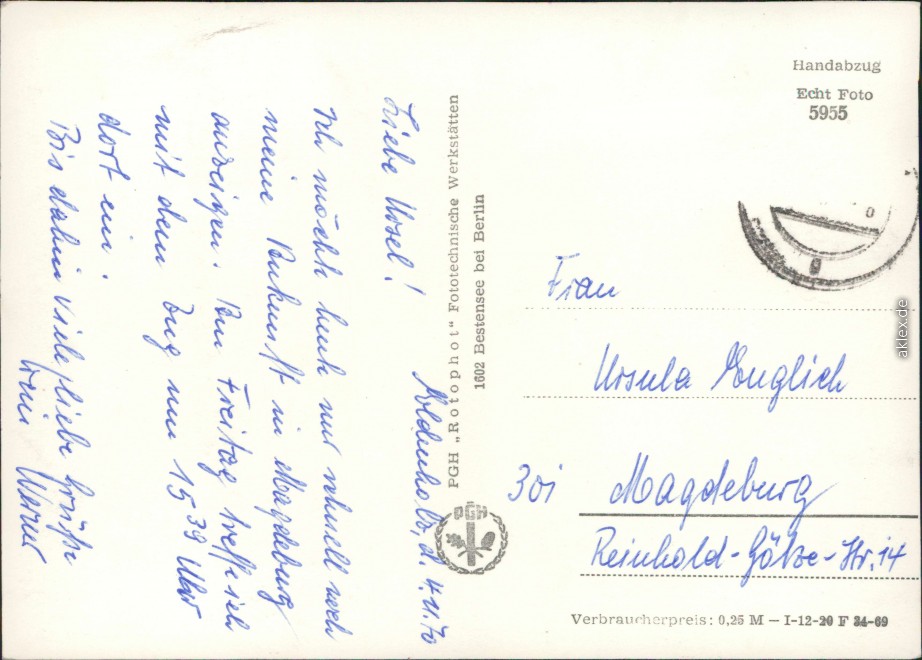 Moldenholz, d. 4.11.70
Liebe Ursel!
Ich möcht heut nur schnell noch
meine Ankunft in Magdeburg
anzeigen. Am Freitag treffe ich
mit dem Zug um 15³⁹ Uhr
dort ein.
Bis dahin viele liebe Grüße
Werner
PGH „Rotophot" Fototechnische Werkstätten
1602 Bestensee bei Berlin
PGH
Handabzug
Echt Foto
5955
Frau
Ursula Englich
301 Magdeburg
Reinhold-Götze-Str. 14
Verbraucherpreis: 0,25 M — I-12-20 F 34-69
aklex.de